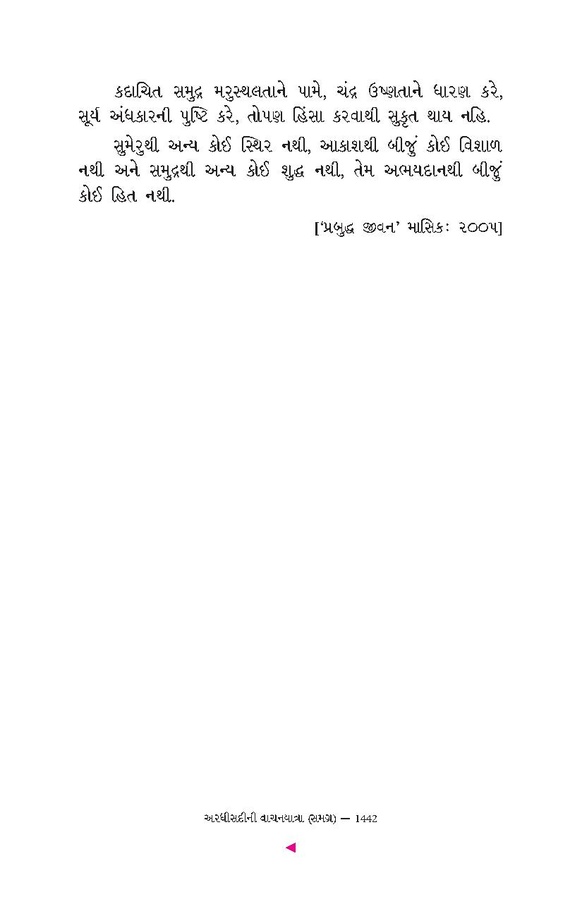 કદાચિત સમુદ્ર મરુસ્થલતાને પામે, ચંદ્ર ઉષ્ણતાને ધારણ કરે,
સૂર્ય અંધકારની પુષ્ટિ કરે, તોપણ હિંસા કરવાથી સુકૃત થાય નહિ.
સુમેરુથી અન્ય કોઈ સ્થિર નથી, આકાશથી બીજું કોઈ વિશાળ
નથી અને સમુદ્રથી અન્ય કોઈ શુદ્ધ નથી, તેમ અભયદાનથી બીજું
કોઈ હિત નથી.
[‘પ્રબુદ્ધ જીવન’ માસિક: ૨૦૦૫]
અરધીસદીની વાચનયાત્રા (સમગ્ર) — 1442